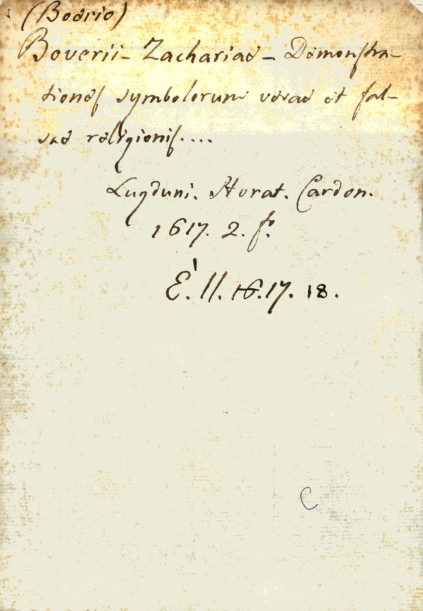 (Boerio)
Boverii - Zachariae - Demonstra-
tiones symbolorum verae et fal-
sae religionis....
Lugduni. Horat. Cardon.
1617. 2. f.
É. II. 16. 17. 18.
C